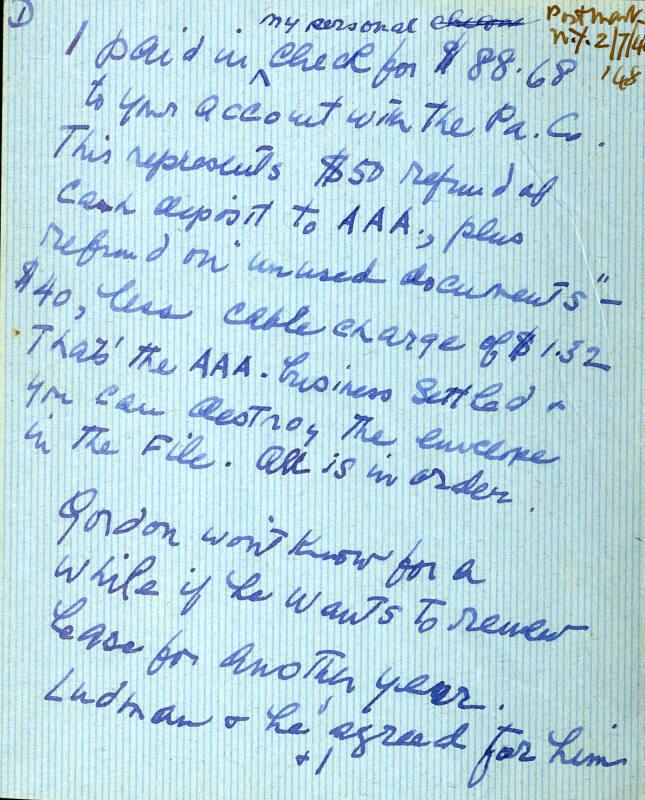 1
Postmark
N.Y. 2/7/48
'48
my personal
I paid in check for $88.68
to your account with the Pa. Co.
This represents $50 refund of
cash deposit to AAA., plus
refund on "unused documents" –
$40, less cable charge of $1.32
That's the AAA. business settled &
you can destroy the envelope
in the File. All is in order.
Gordon won't know for a
while if he wants to renew
lease for another year.
Ludman & he agreed for him
& I